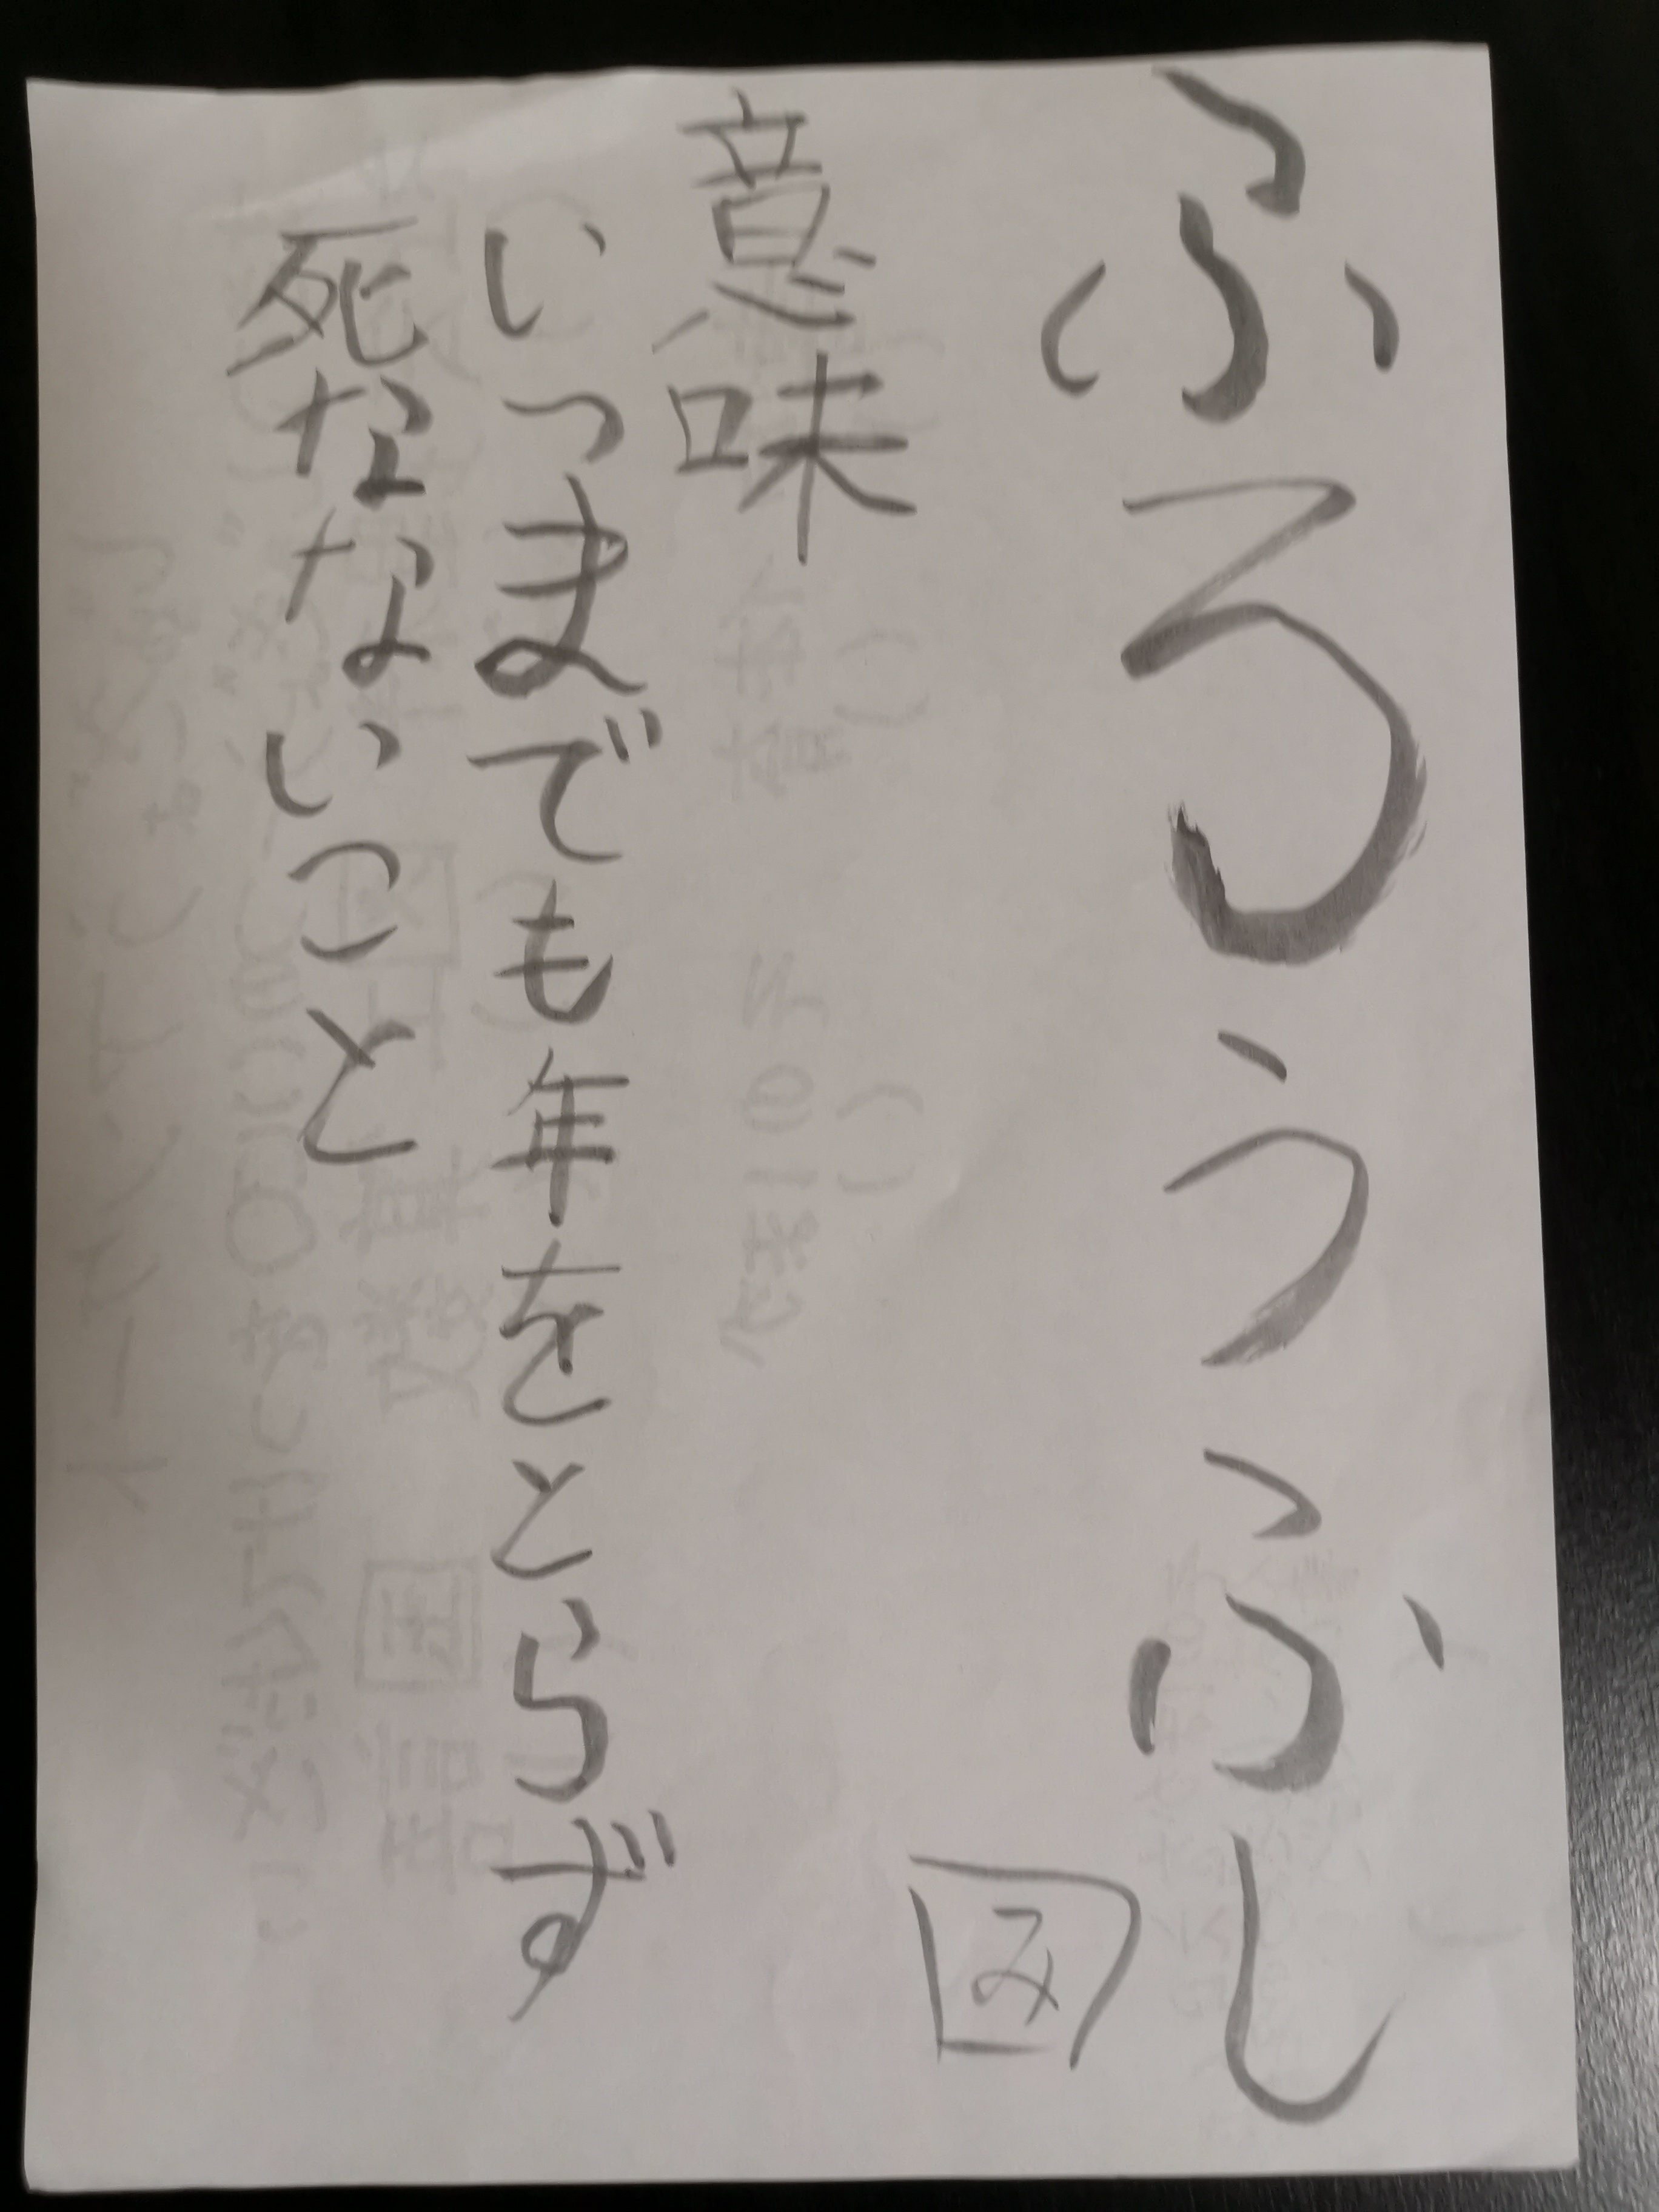 ふろうふし
み
意味
いつまでも年をとらず
死なないこと